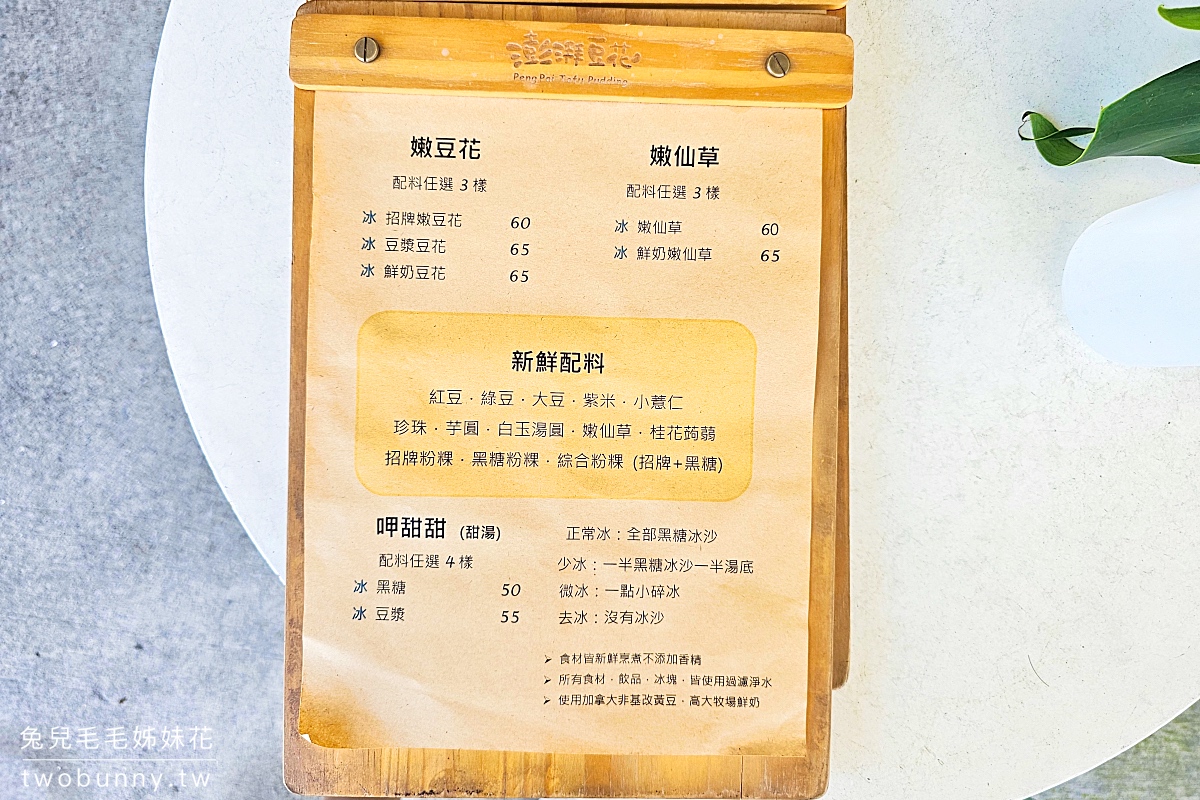 澎湃豆花
PengPai Tofu Pudding
嫩豆花
配料任選 3 樣
冰 招牌嫩豆花 60
冰 豆漿豆花 65
冰 鮮奶豆花 65
嫩仙草
配料任選 3 樣
冰 嫩仙草 60
冰 鮮奶嫩仙草 65
新鮮配料
紅豆．綠豆．大豆．紫米．小薏仁
珍珠．芋圓．白玉湯圓．嫩仙草．桂花蒟蒻
招牌粉粿．黑糖粉粿．綜合粉粿 (招牌+黑糖)
呷甜甜 (甜湯)
配料任選 4 樣
冰 黑糖 50
冰 豆漿 55
正常冰：全部黑糖冰沙
少冰：一半黑糖冰沙一半湯底
微冰：一點小碎冰
去冰：沒有冰沙
➢ 食材皆新鮮烹煮不添加香精
➢ 所有食材．飲品．冰塊．皆使用過濾淨水
➢ 使用加拿大非基改黃豆．高大牧場鮮奶
兔兒毛毛姊妹花
twobunny.tw